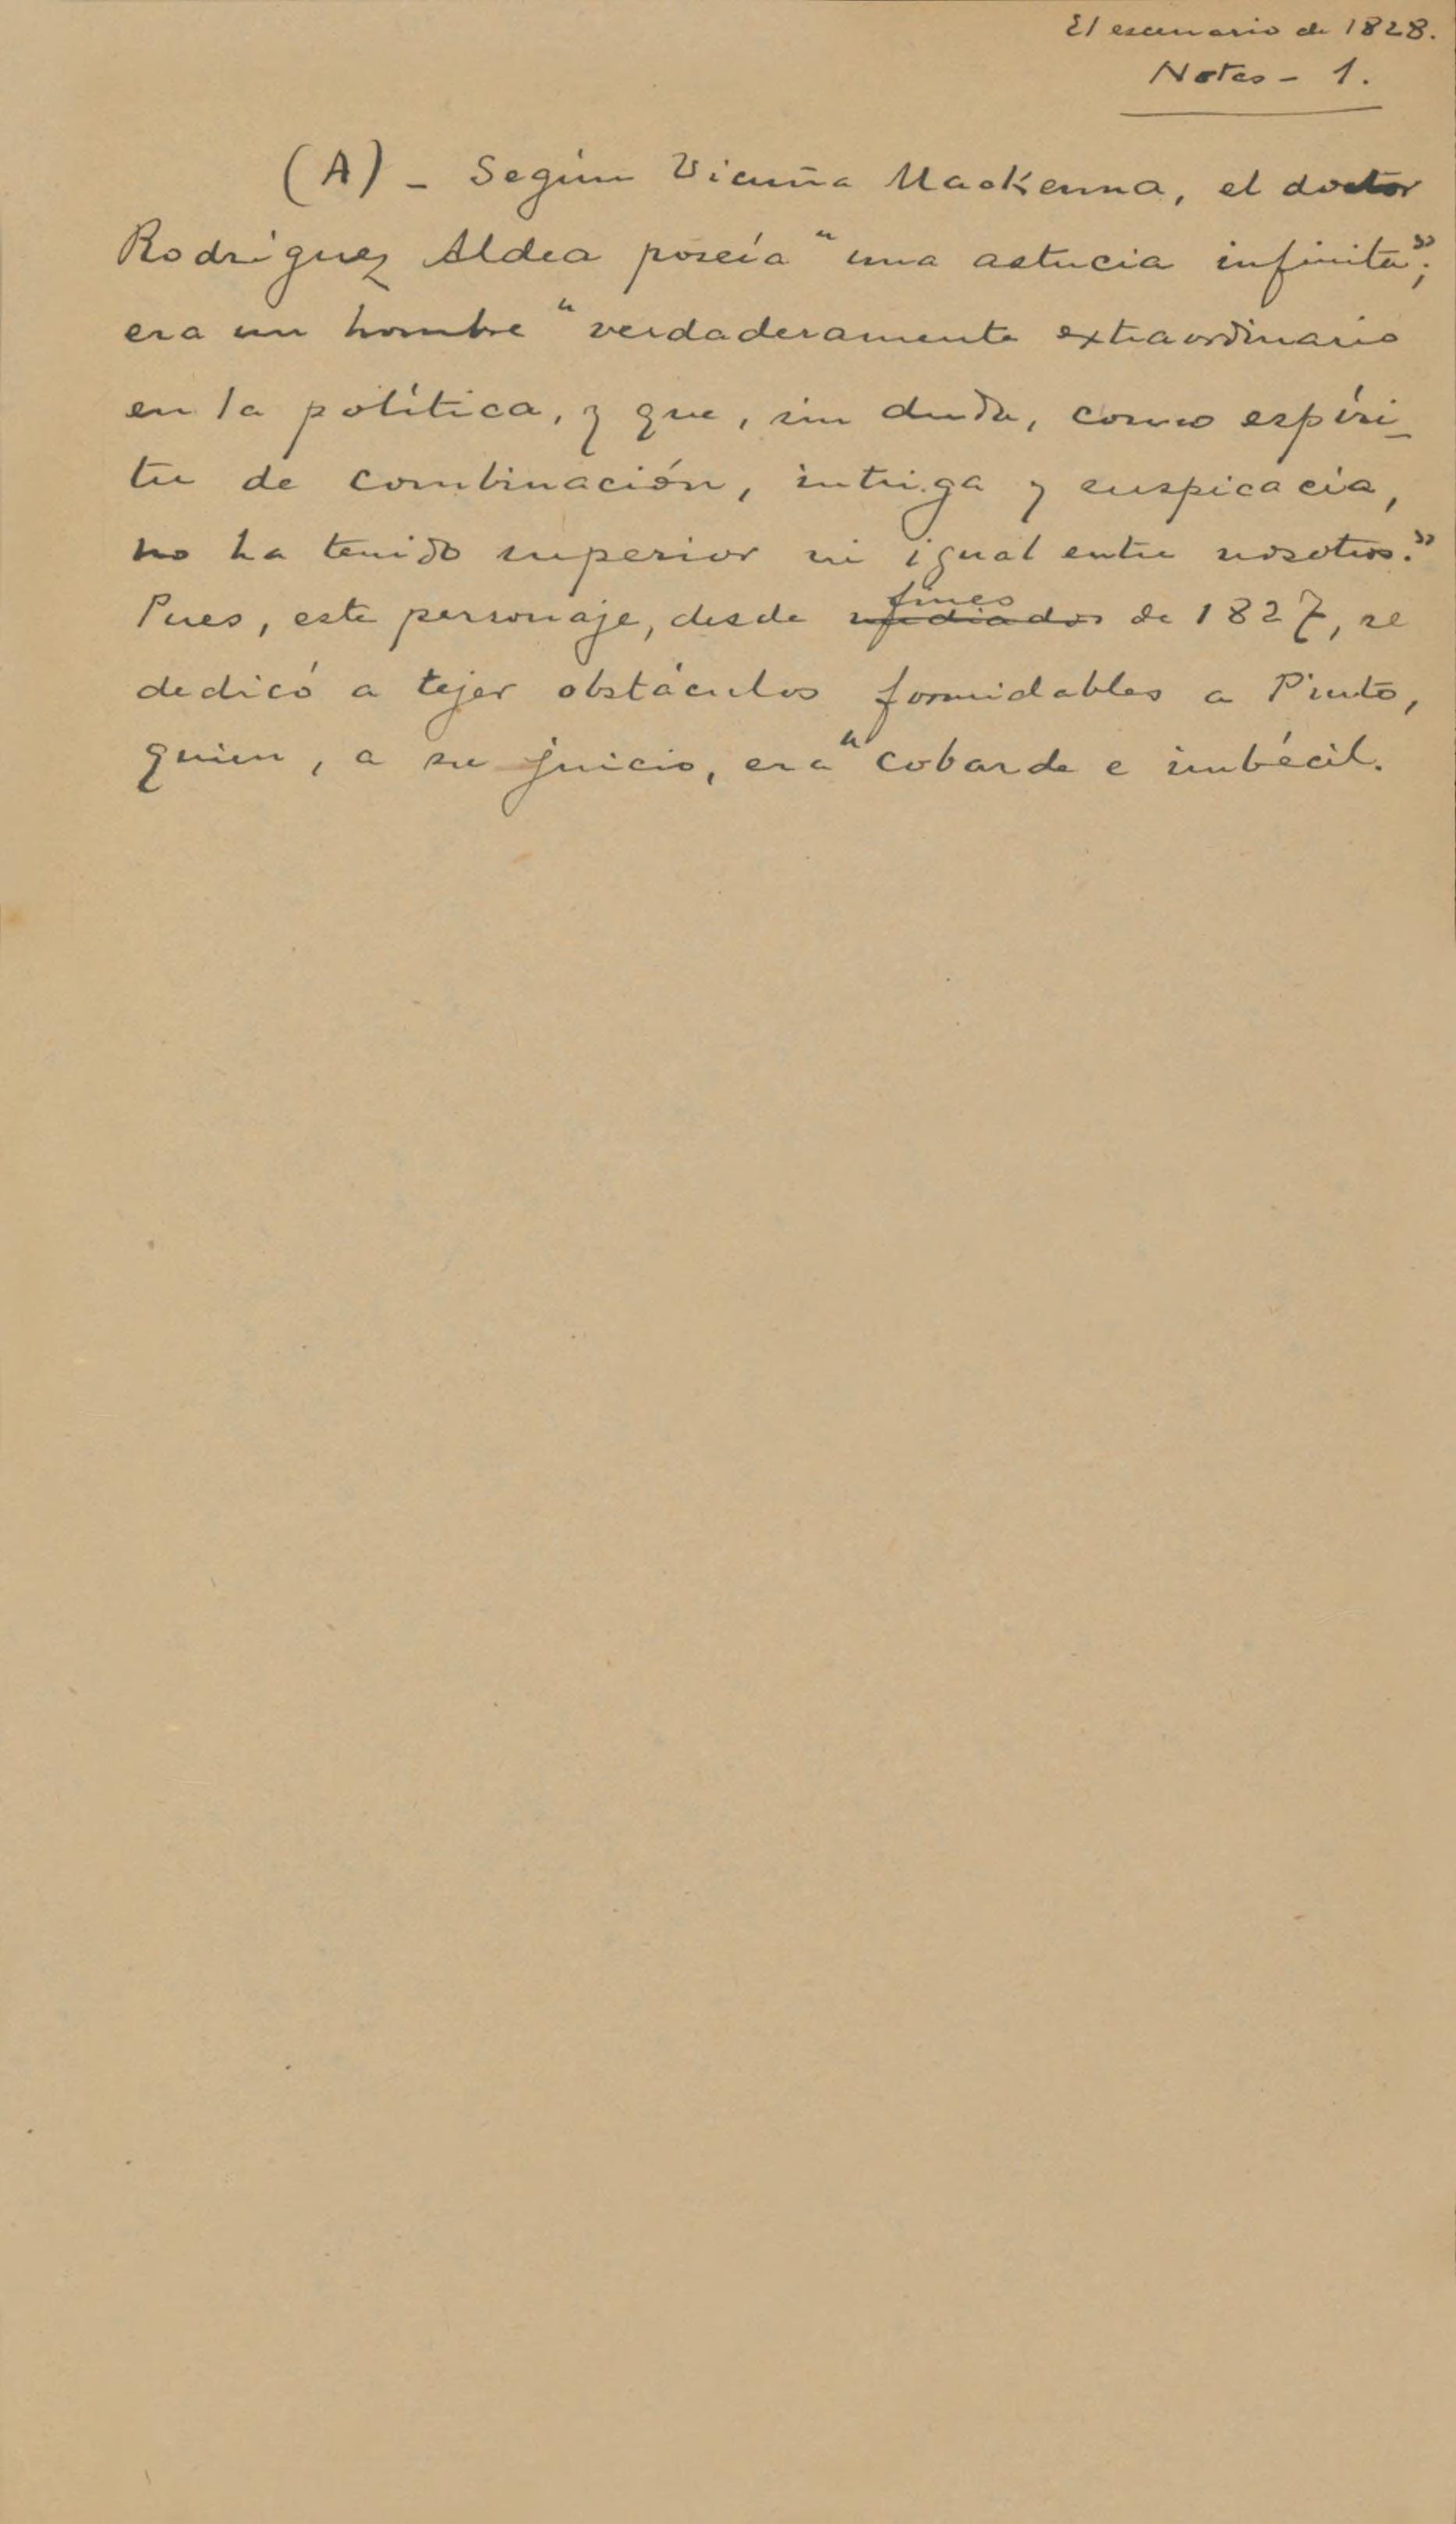 El escenario de 1828.
Notas - 1.
(A) - Según Vicuña Mackenna, el doctor
Rodríguez Aldea poseía "una astucia infinita";
era un hombre "verdaderamente extraordinario
en la política, y que, sin duda, como espíri-
tu de combinación, intriga y suspicacia,
no ha tenido superior ni igual entre nosotros."
fines
Pues, este personaje, desde mediados de 1827, se
dedicó a tejer obstáculos formidables a Pinto,
quien, a su juicio, era "cobarde e imbécil.